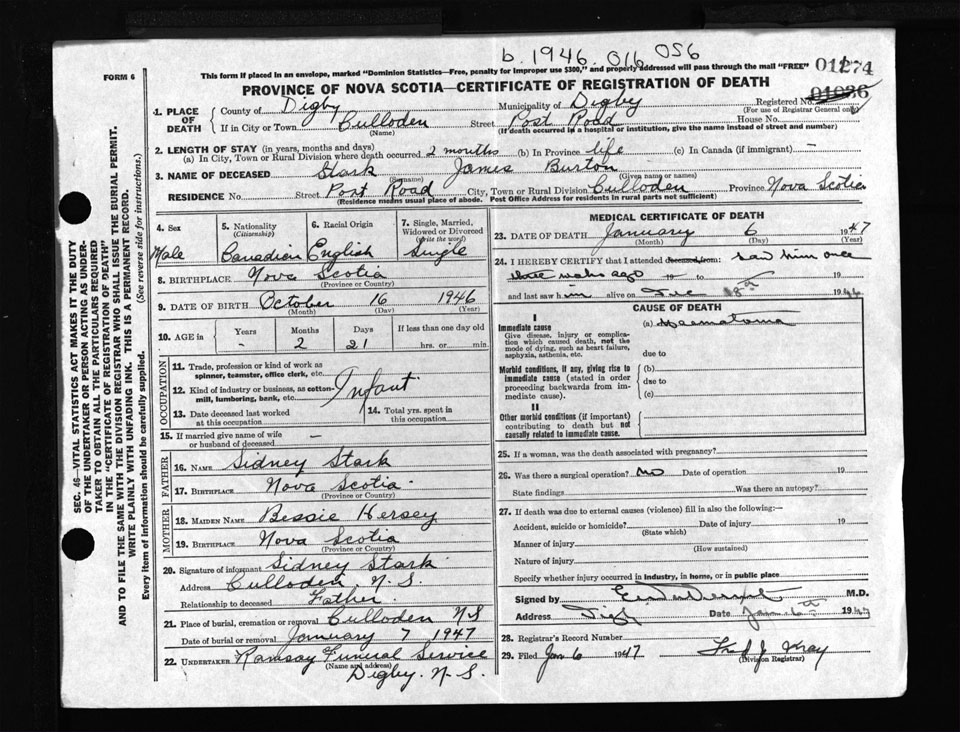 b. 1946. 016 056
FORM 6
This form if placed in an envelope, marked "Dominion Statistics—Free, penalty for improper use $300," and properly addressed will pass through the mail "FREE"
01274
PROVINCE OF NOVA SCOTIA—CERTIFICATE OF REGISTRATION OF DEATH
01036
1. PLACE OF DEATH
County of Digby Municipality of Digby Registered No.
(For use of Registrar General only)
If in City or Town Culloden Street Post Road House No.
(Name) (If death occurred in a hospital or institution, give the name instead of street and number)
2. LENGTH OF STAY (in years, months and days)
(a) In City, Town or Rural Division where death occurred 2 months (b) In Province life (c) In Canada (if immigrant) —
3. NAME OF DECEASED Stark James Burton
(Surname) (Given name or names)
RESIDENCE No. Street Post Road City, Town or Rural Division Culloden Province Nova Scotia
(Residence means usual place of abode. Post Office Address for residents in rural parts not sufficient)
4. Sex
Male
5. Nationality
(Citizenship)
Canadian
6. Racial Origin
English
7. Single, Married, Widowed or Divorced
(write the word)
Single
8. BIRTHPLACE Nova Scotia
(Province or Country)
9. DATE OF BIRTH October 16 1946
(Month) (Day) (Year)
10. AGE in Years Months Days If less than one day old
- 2 21 hrs. or min.
OCCUPATION
11. Trade, profession or kind of work as spinner, teamster, office clerk, etc.
12. Kind of industry or business, as cotton-mill, lumbering, bank, etc.
Infant
13. Date deceased last worked at this occupation
14. Total yrs. spent in this occupation
15. If married give name of wife or husband of deceased —
FATHER
16. NAME Sidney Stark
17. BIRTHPLACE Nova Scotia
(Province or Country)
MOTHER
18. MAIDEN NAME Bessie Hersey
19. BIRTHPLACE Nova Scotia
(Province or Country)
20. Signature of informant Sidney Stark
Address Culloden N.S.
Relationship to deceased Father
21. Place of burial, cremation or removal Culloden NS
Date of burial or removal January 7 1947
22. UNDERTAKER Ramsay Funeral Service
(Name and address)
Digby. N-S.
MEDICAL CERTIFICATE OF DEATH
23. DATE OF DEATH January 6 1947
(Month) (Day) (Year)
24. I HEREBY CERTIFY that I attended deceased from: saw him once
three weeks ago 19 to 19
and last saw him alive on Dec 18th 1946
CAUSE OF DEATH
I
Immediate cause
Give disease, injury or complication which caused death, not the mode of dying, such as heart failure, asphyxia, asthenia, etc.
(a) Haematoma
due to
Morbid conditions, if any, giving rise to immediate cause (stated in order proceeding backwards from immediate cause).
(b)
due to
(c)
II
Other morbid conditions (if important) contributing to death but not causally related to immediate cause.
25. If a woman, was the death associated with pregnancy?
26. Was there a surgical operation? no Date of operation 19
State findings Was there an autopsy?
27. If death was due to external causes (violence) fill in also the following:—
Accident, suicide or homicide? Date of injury 19
(State which)
Manner of injury
(How sustained)
Nature of injury
Specify whether injury occurred in industry, in home, or in public place
Signed by M.D.
Address Digby Date Jan 6th 1947
28. Registrar's Record Number
29. Filed Jan 6 1947 Fred J. May
(Division Registrar)
SEC. 46—VITAL STATISTICS ACT MAKES IT THE DUTY
OF THE UNDERTAKER OR PERSON ACTING AS UNDERTAKER TO OBTAIN ALL THE PARTICULARS REQUIRED
IN THE "CERTIFICATE OF REGISTRATION OF DEATH"
AND TO FILE THE SAME WITH THE DIVISION REGISTRAR WHO SHALL ISSUE THE BURIAL PERMIT.
WRITE PLAINLY WITH UNFADING INK. THIS IS A PERMANENT RECORD.
Every item of information should be carefully supplied. (See reverse side for instructions.)